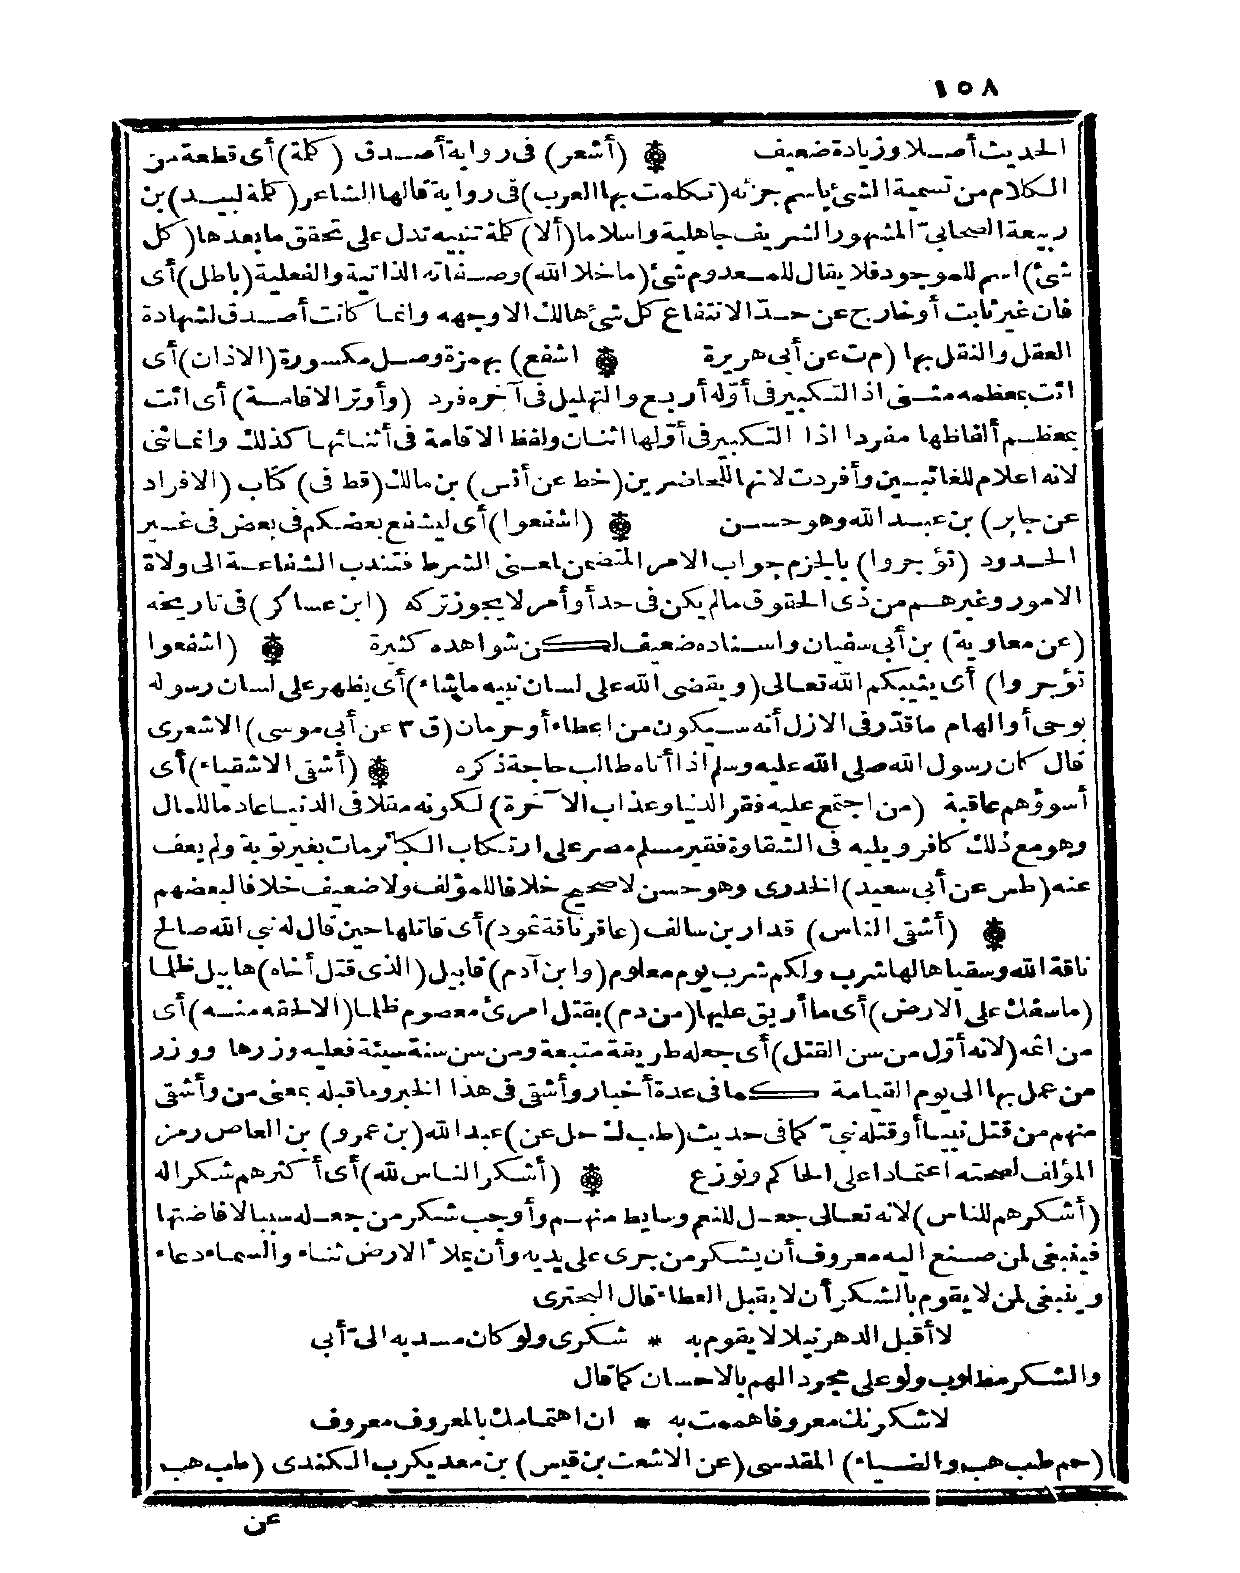 ١٥٨
الحديث أصلا وزيادة ضعيف ۞ (أشعر) فى رواية أصدق (كلمة) أى قطعة من
الكلام من تسمية الشئ باسم جزئه (تكلمت بها العرب) فى رواية قالها الشاعر (كلمة لبيد) بن
ربيعة الصحابىّ المشهور الشريف جاهلية واسلاما (ألا) كلة تنبيه تدل على تحقق ما بعدها (كل
شئ) اسم للموجود فلا يقال للمعدوم شئ (ما خلا الله) وصفاته الذاتية والفعلية (باطل) أى
فان غير ثابت أو خارج عن حدّ الانتفاع كل شئ هالك الا وجهه وانما كانت أصدق لشهادة
العقل والنقل بها (م ت عن أبى هريرة ۞ اشفع) بهمزة وصل مكسورة (الاذان) أى
ائت بمعظمه مثنى اذ التكبير فى أوّله أربع والتهليل فى آخره فرد (وأوتر الاقامة) أى ائت
بمعظم ألفاظها مفردا اذا التكبير فى أوّلها اثنان ولفظ الاقامة فى أثنائها كذلك وانما ثنى
لانه اعلام للغائبين وأفردت لانها للحاضرين (خط عن أنس) بن مالك (قط فى) كتاب (الافراد
عن جابر) بن عبد الله وهو حسن ۞ (اشفعوا) أى ليشفع بعضكم فى بعض فى غير
الحدود (تؤجروا) بالجزم جواب الامر المتضمن لمعنى الشرط فتندب الشفاعة الى ولاة
الامور وغيرهم من ذى الحقوق مالم يكن فى حد أو أمر لا يجوز تركه (ابن عساكر) فى تاريخه
(عن معاوية) بن أبى سفيان واسناده ضعيف لكن شواهده كثيرة ۞ (اشفعوا
تؤجروا) أى يثيبكم الله تعالى (ويقضى الله على لسان نبيه ماشاء) أى يظهر على لسان رسوله
بوحى أو الهام ما قدّر فى الازل أنه سيكون من اعطاء أو حرمان (ق ٣ عن أبى موسى) الاشعرى
قال كان رسول الله صلى الله عليه وسلم اذا أتاه طالب حاجة ذكره ۞ (أشقى الاشقياء) أى
أسوؤهم عاقبة (من اجتمع عليه فقر الدنيا وعذاب الآخرة) لكونه مقلا فى الدنيا عادما للمال
وهو مع ذلك كافر ويليه فى الشقاوة فقير مسلم مصر على ارتكاب الكبائر مات بغير توبة ولم يعف
عنه (طس عن أبى سعيد) الخدرى وهو حسن لا صحيح خلافا للمؤلف ولا ضعيف خلافا لبعضهم
۞ (أشقى الناس) قدار بن سالف (عاقر ناقة ثمود) أى قاتلها حين قال له نبى الله صالح
ناقة الله وسقياها لها شرب ولكم شرب يوم معلوم (وابن آدم) قابيل (الذى قتل أخاه) هابيل ظلما
(ما سفك على الارض) أى ما أريق عليها (من دم) بقتل امرئ معصوم ظلما (الا لحقه منه) أى
من اثمه (لانه أوّل من سن القتل) أى جعله طريقة متبعة ومن سن سنة سيئة فعليه وزرها ووزر
من عمل بها الى يوم القيامة كما فى عدة أخبار وأشقى فى هذا الخبر وما قبله بمعنى من وأشقى
منهم من قتل نبيا أو قتله نبىّ كما فى حديث (طب ك حل عن) عبد الله (بن عمرو) بن العاص رمز
المؤلف لصحته اعتمادا على الحاكم ونوزع ۞ (أشكر الناس لله) أى أكثرهم شكرا له
(أشكرهم للناس) لانه تعالى جعل للنعم وسايط منهم وأوجب شكر من جعله سببا لافاضتها
فينبغى لمن صنع اليه معروف أن يشكر من جرى على يديه وأن يملأ الارض ثناء والسماء دعاء
وينبغى لمن لا يقوم بالشكر أن لا يقبل العطاء قال البحترى
لا أقبل الدهر نيلا لا يقوم به * شكرى ولو كان مسديه الىّ أبى
والشكر مطلوب ولو على مجرد الهم بالاحسان كما قال
لاشكرنك معروفا هممت به * ان اهتمامك بالمعروف معروف
(حم طب هب والضياء) المقدسى (عن الاشعث بن قيس) بن معديكرب الكندى (طب هب
عن